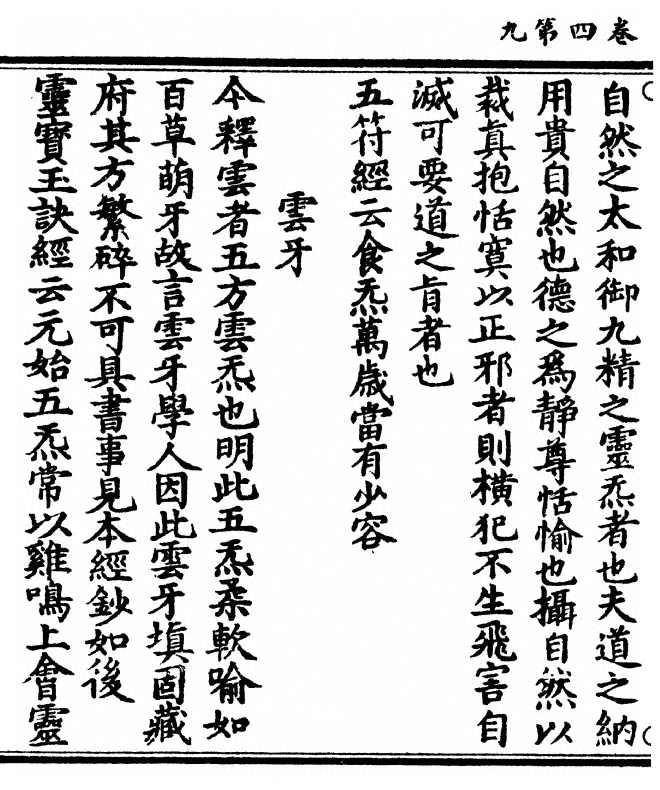 卷四第九
自然之太和御九精之靈炁者也夫道之納
用貴自然也德之為靜尊恬愉也攝自然以
裁真抱恬寞以正邪者則橫犯不生飛害自
滅可要道之肯者也
五符經云食炁萬歲當有少容
雲牙
今釋雲者五方雲炁也明此五炁柔軟喻如
百草萌牙故言雲牙學人因此雲牙填固藏
府其方繁碎不可具書事見本經鈔如後
靈寶玉訣經云元始五炁常以雞鳴上會靈